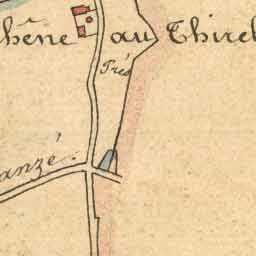 hêne au Thirel
Prés
anzé.